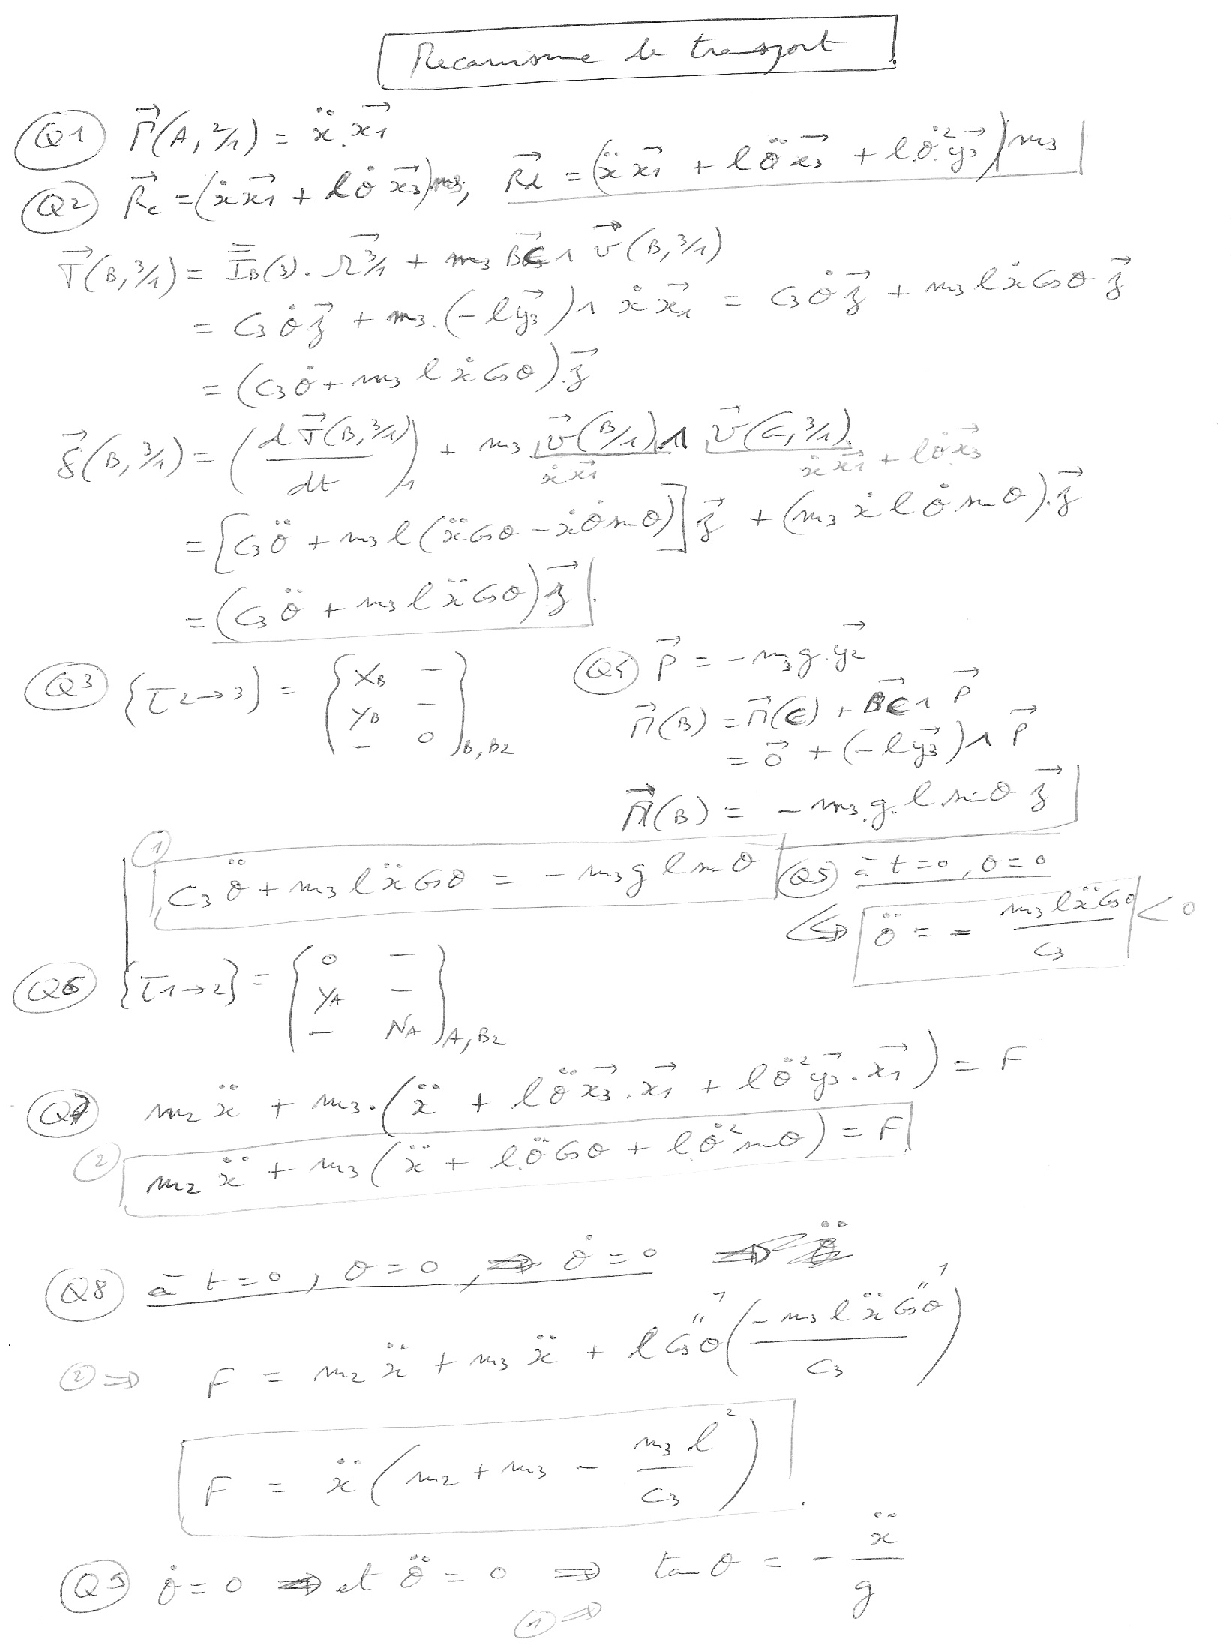 Mecanisme de transport
Q1 Γ⃗(A, 2/1) = ẍ.x⃗1
Q2 R⃗c = (ẋx⃗1 + lθ̇ x⃗3)m3, R⃗d = (ẍ x⃗1 + lθ̈ x⃗3 + lθ̇² y⃗3) m3
σ⃗(B, 3/1) = I̿B(3). Ω⃗3/1 + m3 B⃗G ∧ v⃗(B, 3/1)
= C3 θ̇ z⃗ + m3.(-l y⃗3) ∧ ẋ x⃗1 = C3 θ̇ z⃗ + m3 l ẋ cosθ z⃗
= (C3 θ̇ + m3 l ẋ cosθ). z⃗
δ⃗(B, 3/1) = (d σ⃗(B, 3/1) / dt)1 + m3 v⃗(B/1) ∧ v⃗(G, 3/1)
ẋ x⃗1 ẋ x⃗1 + lθ̇ x⃗3
= [C3 θ̈ + m3 l (ẍ cosθ - ẋ θ̇ sinθ)] z⃗ + (m3 ẋ l θ̇ sinθ). z⃗
= (C3 θ̈ + m3 l ẍ cosθ) z⃗
Q3 {τ2→3} = { XB - / YB - / - 0 }B, B2
Q4 P⃗ = - m3 g. y⃗2
M⃗(B) = M⃗(G) + B⃗G ∧ P⃗
= 0⃗ + (-l y⃗3) ∧ P⃗
M⃗(B) = - m3. g. l sinθ z⃗
1 C3 θ̈ + m3 l ẍ cosθ = - m3 g l sinθ
Q5 à t=0, θ=0
⇔ θ̈ = - m3 l ẍ cosθ / C3 < 0
Q6 {τ1→2} = { 0 - / YA - / - NA }A, B2
Q7 m2 ẍ + m3.(ẍ + lθ̈ x⃗3. x⃗1 + lθ̇² y⃗3. x⃗1) = F
2 m2 ẍ + m3 (ẍ + lθ̈ cosθ + lθ̇² sinθ) = F
Q8 à t=0, θ=0, θ̇=0
2 ⇒ F = m2 ẍ + m3 ẍ + l cosθ (- m3 l ẍ cosθ / C3)
"1 "1
F = ẍ (m2 + m3 - m3 l² / C3).
Q9 θ̇=0 et θ̈=0 ⇒ tan θ = - ẍ / g
1 ⇒